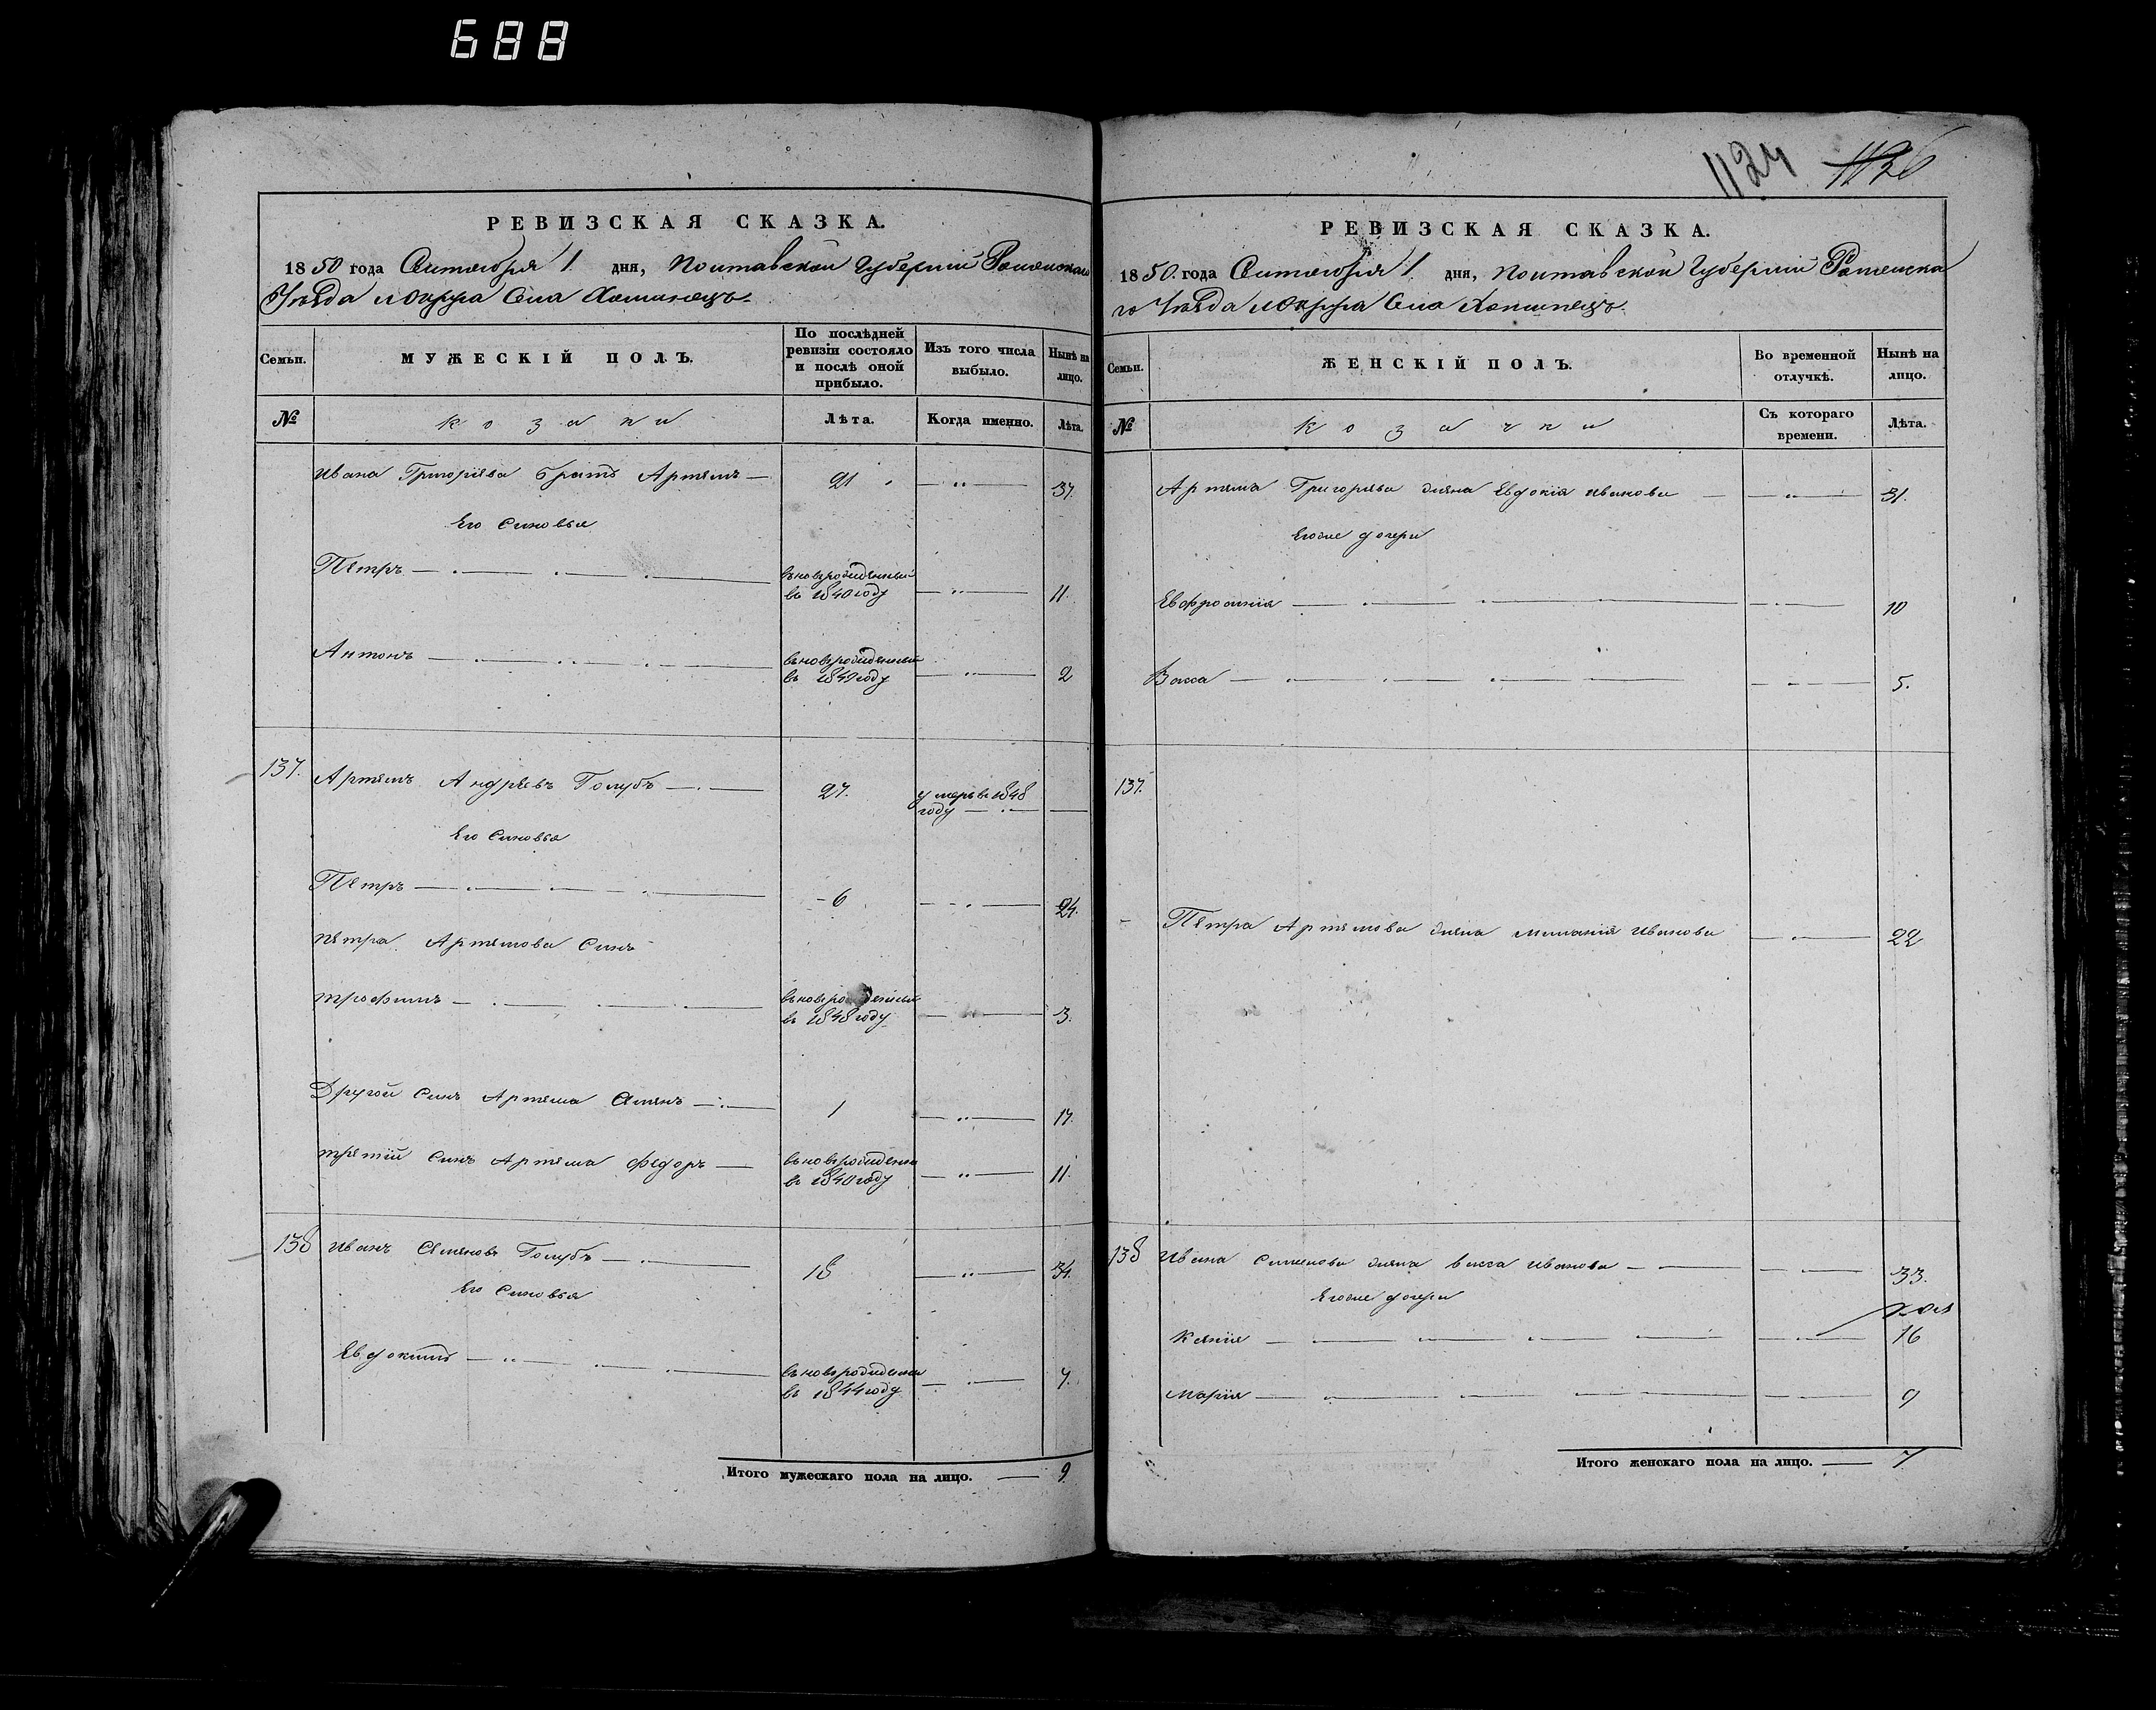 688
1124 1136
РЕВИЗСКАЯ СКАЗКА.
1850 года Сентября 1 дня, Полтавской Губерніи Роменскаго
Уѣзда и округа Села
Семьи. МУЖЕСКІЙ ПОЛЪ. По послѣдней ревизіи состояло и послѣ оной прибыло. Изъ того числа выбыло. Нынѣ на лицо.
№ козаки Лѣта. Когда именно. Лѣта.
Ивана Григорьева братъ Артемъ 21 37.
Его Синовья
Петръ вновърожденный в 1840 году 11.
Антонъ вновърожденный в 1849 году 2
137. Артемъ Андреевъ Голубъ 27. умеръ в 1848 году
Его Синовья
Петръ 6 24.
Петра Артемова Синъ
Трофимъ вновърожденный в 1848 году 3.
Другой Синъ Артема Семенъ 1 17.
Третій Синъ Артема Федоръ вновърожденый в 1840 году 11.
138 Иванъ Семеновъ Голубъ 18 34.
Его Синовья
Евдокимъ вновърожденый в 1844 году 7.
Итого мужескаго пола на лицо. 9.
РЕВИЗСКАЯ СКАЗКА.
1850. года Сентября 1 дня, Полтавской Губерніи Роменска
го Уѣзда и округа Села
Семьи. ЖЕНСКІЙ ПОЛЪ. Во временной отлучкѣ. Нынѣ на лицо.
№ козачки Съ котораго времени. Лѣта.
Артема Григорьева жена Евдокія Иванова 31.
Егоже дочери
Евфросинія 10
Васса 5.
137.
Петра Артемова жена Меланія Иванова 22
138 Ивана Семенова жена Васса Иванова 33.
Егоже дочери
Ксенія 16
Марія 9
Итого женскаго пола на лицо. 7